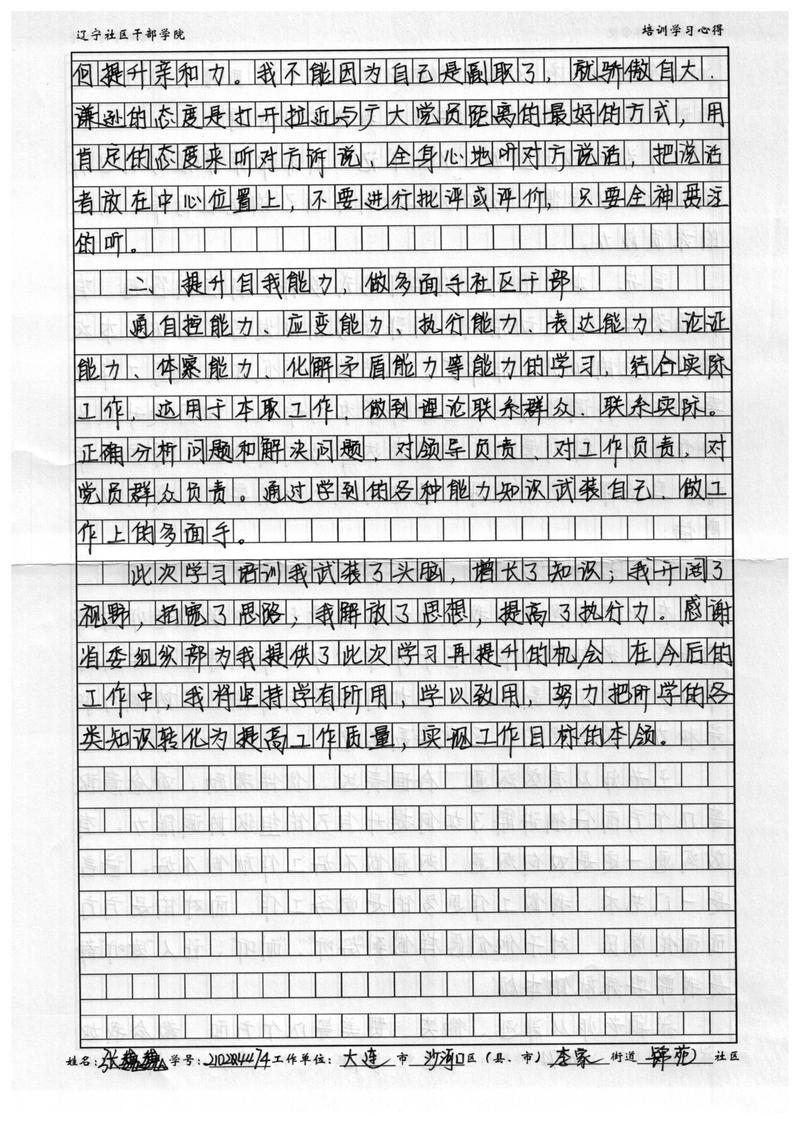 辽宁社区干部学院 培训学习心得
何提升亲和力。我不能因为自己是副职了，就骄傲自大．
谦逊的态度是打开拉近与广大党员距离的最好的方式，用
肯定的态度来听对方诉说，全身心地听对方说话，把说话
者放在中心位置上，不要进行批评或评价，只要全神贯注
的听。
二、提升自我能力、做多面手社区干部
通自控能力、应变能力、执行能力、表达能力、论证
能力、体察能力、化解矛盾能力等能力的学习，结合实际
工作，运用于本职工作，做到理论联系群众、联系实际。
正确分析问题和解决问题，对领导负责、对工作负责、对
党员群众负责，通过学到的各种能力知识武装自己，做工
作上的多面手。
此次学习培训我武装了头脑，增长了知识；我开阔了
视野，拓宽了思路；我解放了思想，提高了执行力。感谢
省委组织部为我提供了此次学习再提升的机会，在今后的
工作中，我将坚持学有所用，学以致用，努力把所学的各
类知识转化为提高工作质量，实现工作目标的本领。
姓名：张巍巍 学号： 工作单位：大连 市 沙河口 区（县、市） 李家 街道 锦苑 社区